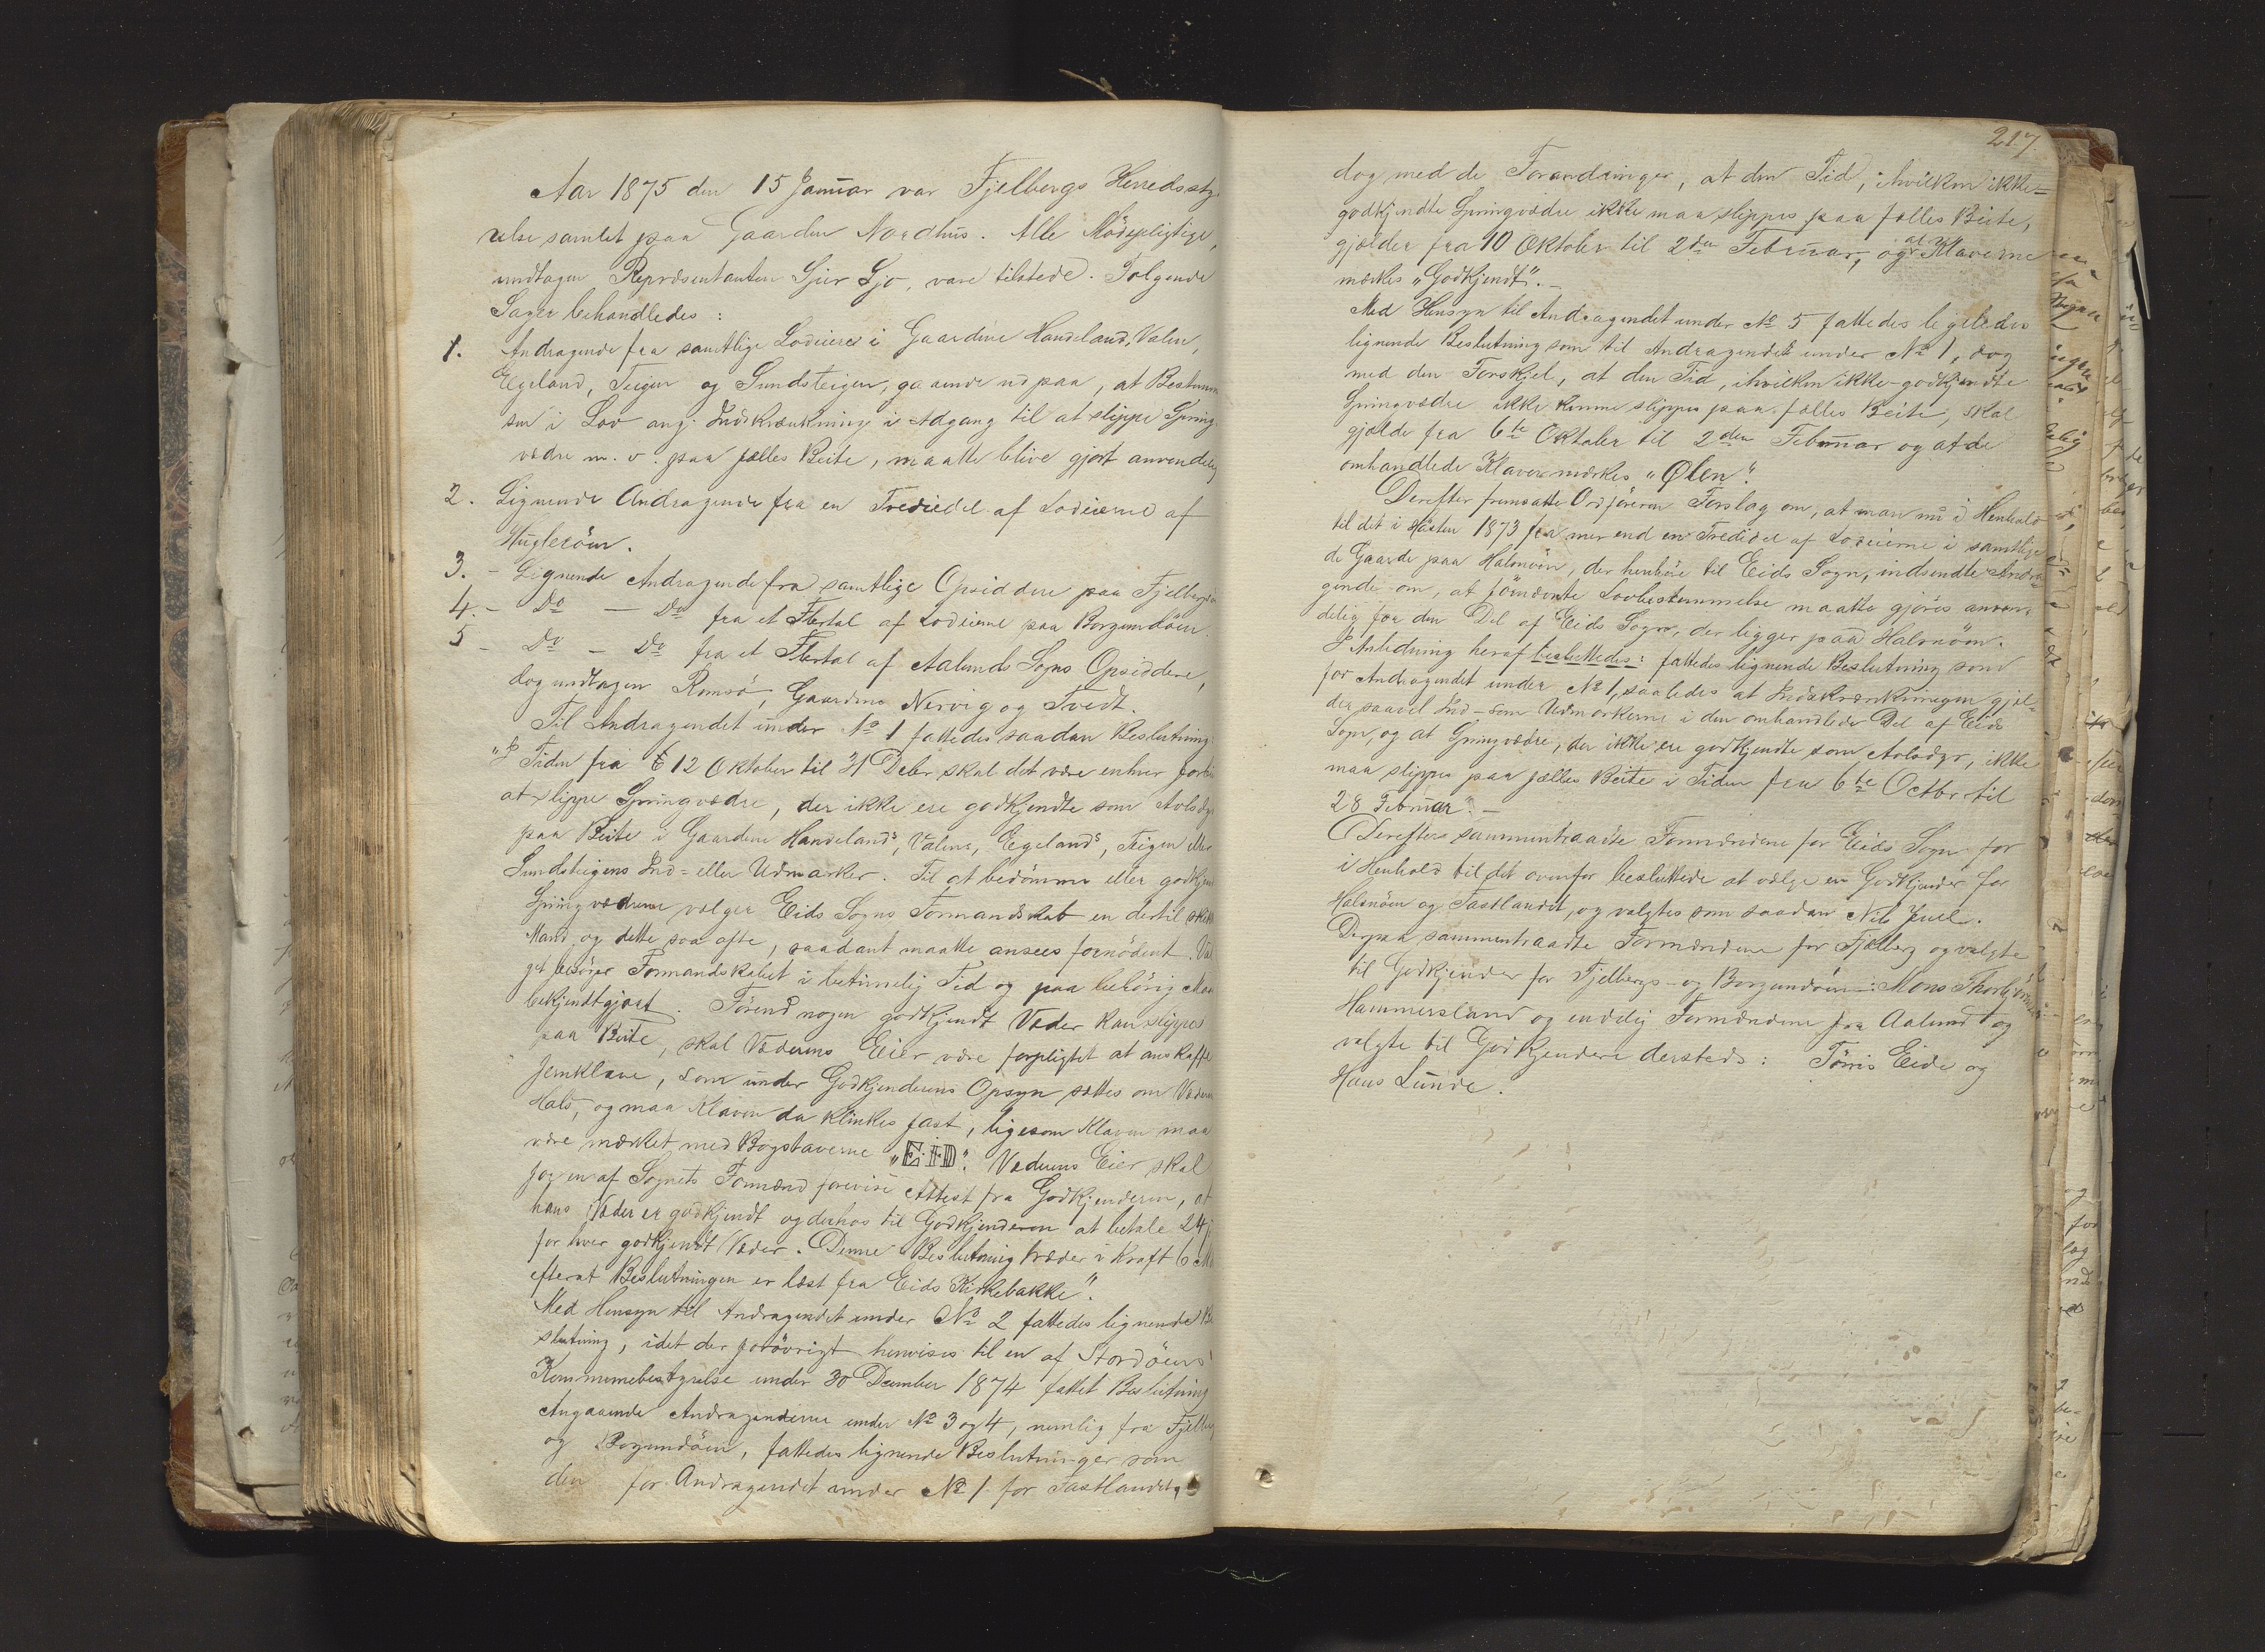 Aar 1875 den 15 Januar var Fjelbergs Herredssty-
relse samlet paa Gaarden Nordhus. Alle Mödepligtige,
undtagen Repræsentanten Gjer Sjo, vare tilstede. Folgende
Sager behandledes:
1. Andragende fra samtlige Lodeiere i Gaardene Handeland, Valen,
Egeland, Teigen og Sundsteigen, gaaende ud paa, at Bestemm
sen i Lov ang. Indskrænkning i Adgang til at slippe Spring-
vædre m. v. paa fælles Beite, maatte blive gjort anvendelig
2. Lignende Andragende fra en Trediedel af Lodeierne af
Hugleröen.
3. - Lignende Andragende fra samtlige Opsiddere paa Fjelbergö
4. - Do - Do fra et Flertal af Lodeierne paa Borgundöen.
5 - Do - Do fra et Flertal af Aalunds Sogns Opsiddere,
dog undtagen Romsö, Gaardene Nervig og Tvedt.
Til Andragendet under No 1 fattedes saadan Beslutning
"I Tiden fra 12 Oktober til 31 Decbr skal det være enhver forbu
at slippe Springvædre, der ikke ere godkjendte som Avlsdyr
paa Beite i Gaardene Handelands, Valens, Egelands, Teigen eller
Sundsteigens Ind- eller Udmarker. Til at bedömme eller godkjen
Springvædrene vælger Eids Sogns Formandskab en dertil skik
Mand, og dette saa ofte, saadant maatte ansees fornödent. Val
get besörger Formandskabet i betimelig Tid og paa behörig Maa
bekjendtgjort. Förend nogen godkjendt Væder kan slippes
paa Beite, skal Væderens Eier være forpligtet at anskaffe
Jernklave, som under Godkjenderens Opsyn sættes om Væderens
Hals, og maa Klaven da klinkes fast, ligesom Klaven maa
være mærket med Bogstaverne "EID". Væderens Eier skal
for en af Sognets Formænd forevise Attest fra Godkjenderen, at
hans Væder er godkjendt og derhos til Godkjenderen at betale 24
for hver godkjendt Væder. Denne Beslutning træder i Kraft 6
efterat Beslutningen er læst fra Eids Kirkebakke".
Med Hensyn til Andragendet under No 2 fattedes lignende Be
slutning, idet der forövrigt henvises til en af Stordöens
Kommunebestyrelse under 30 December 1874 fattet Beslutning
Angaaende Andragenderne under No 3 og 4, nemlig fra Fjelberg
og Borgundöen, fattedes lignende Beslutninger som
den for Andragendet under No 1 for Fastlandet,
217
dog med de Forandringer, at den Tid, i hvilken ikke-
godkjendte Springvædre ikke maa slippes paa fælles Beite,
gjælder fra 10 Oktober til 2den Februar, og at Klaverne
mærkes "Godkjendt". -
Med Hensyn til Andragendet under No 5 fattedes ligeledes
lignende Beslutning som til Andragendet under No 1, dog
med den Forskjel, at den Tid, i hvilken ikke-godkjendte
Springvædre ikke kunne slippes paa fælles Beite, skal
gjælde fra 6te Oktober til 2den Februar og at de
omhandlede Klaver mærkes "Ølen".
Derefter fremsatte Ordföreren Forslag om, at man nu i Henhold
til det i Hösten 1873 fra mer end en Trediedel af Lodeierne i samtlige
de Gaarde paa Halsnöen, der henhöre til Eids Sogn, indsendte Andra-
gende om, at förnævnte Lovbestemmelse maatte gjöres anven-
delig for den Del af Eids Sogn, der ligger paa Halsnöen.
I Anledning heraf besluttedes: fattedes lignende Beslutning som
for Andragendet under No 1, saaledes at Indskrænkningen gjæl-
der saavel Ind- som Udmarkerne i den omhandlede Del af Eids
Sogn, og at Springvædre, der ikke ere godkjendte som Avlsdyr, ikke
maa slippes paa fælles Beite i Tiden fra 6te Octbr til
28 Februar". -
Derefter sammentraadte Formændene for Eids Sogn for
i Henhold til det ovenfor besluttede at vælge en Godkjender for
Halsnöen og Fastlandet, og valgtes som saadan Nils Juul.
Derpaa sammentraadte Formændene for Fjelberg og valgte
til Godkjender for Fjelbergs- og Borgundöen: Mons Thorbjörnsen
Hammersland og endelig Formændene fra Aalund og
valgte til Godkjendere dersteds: Törris Eide og
Hans Lunde.